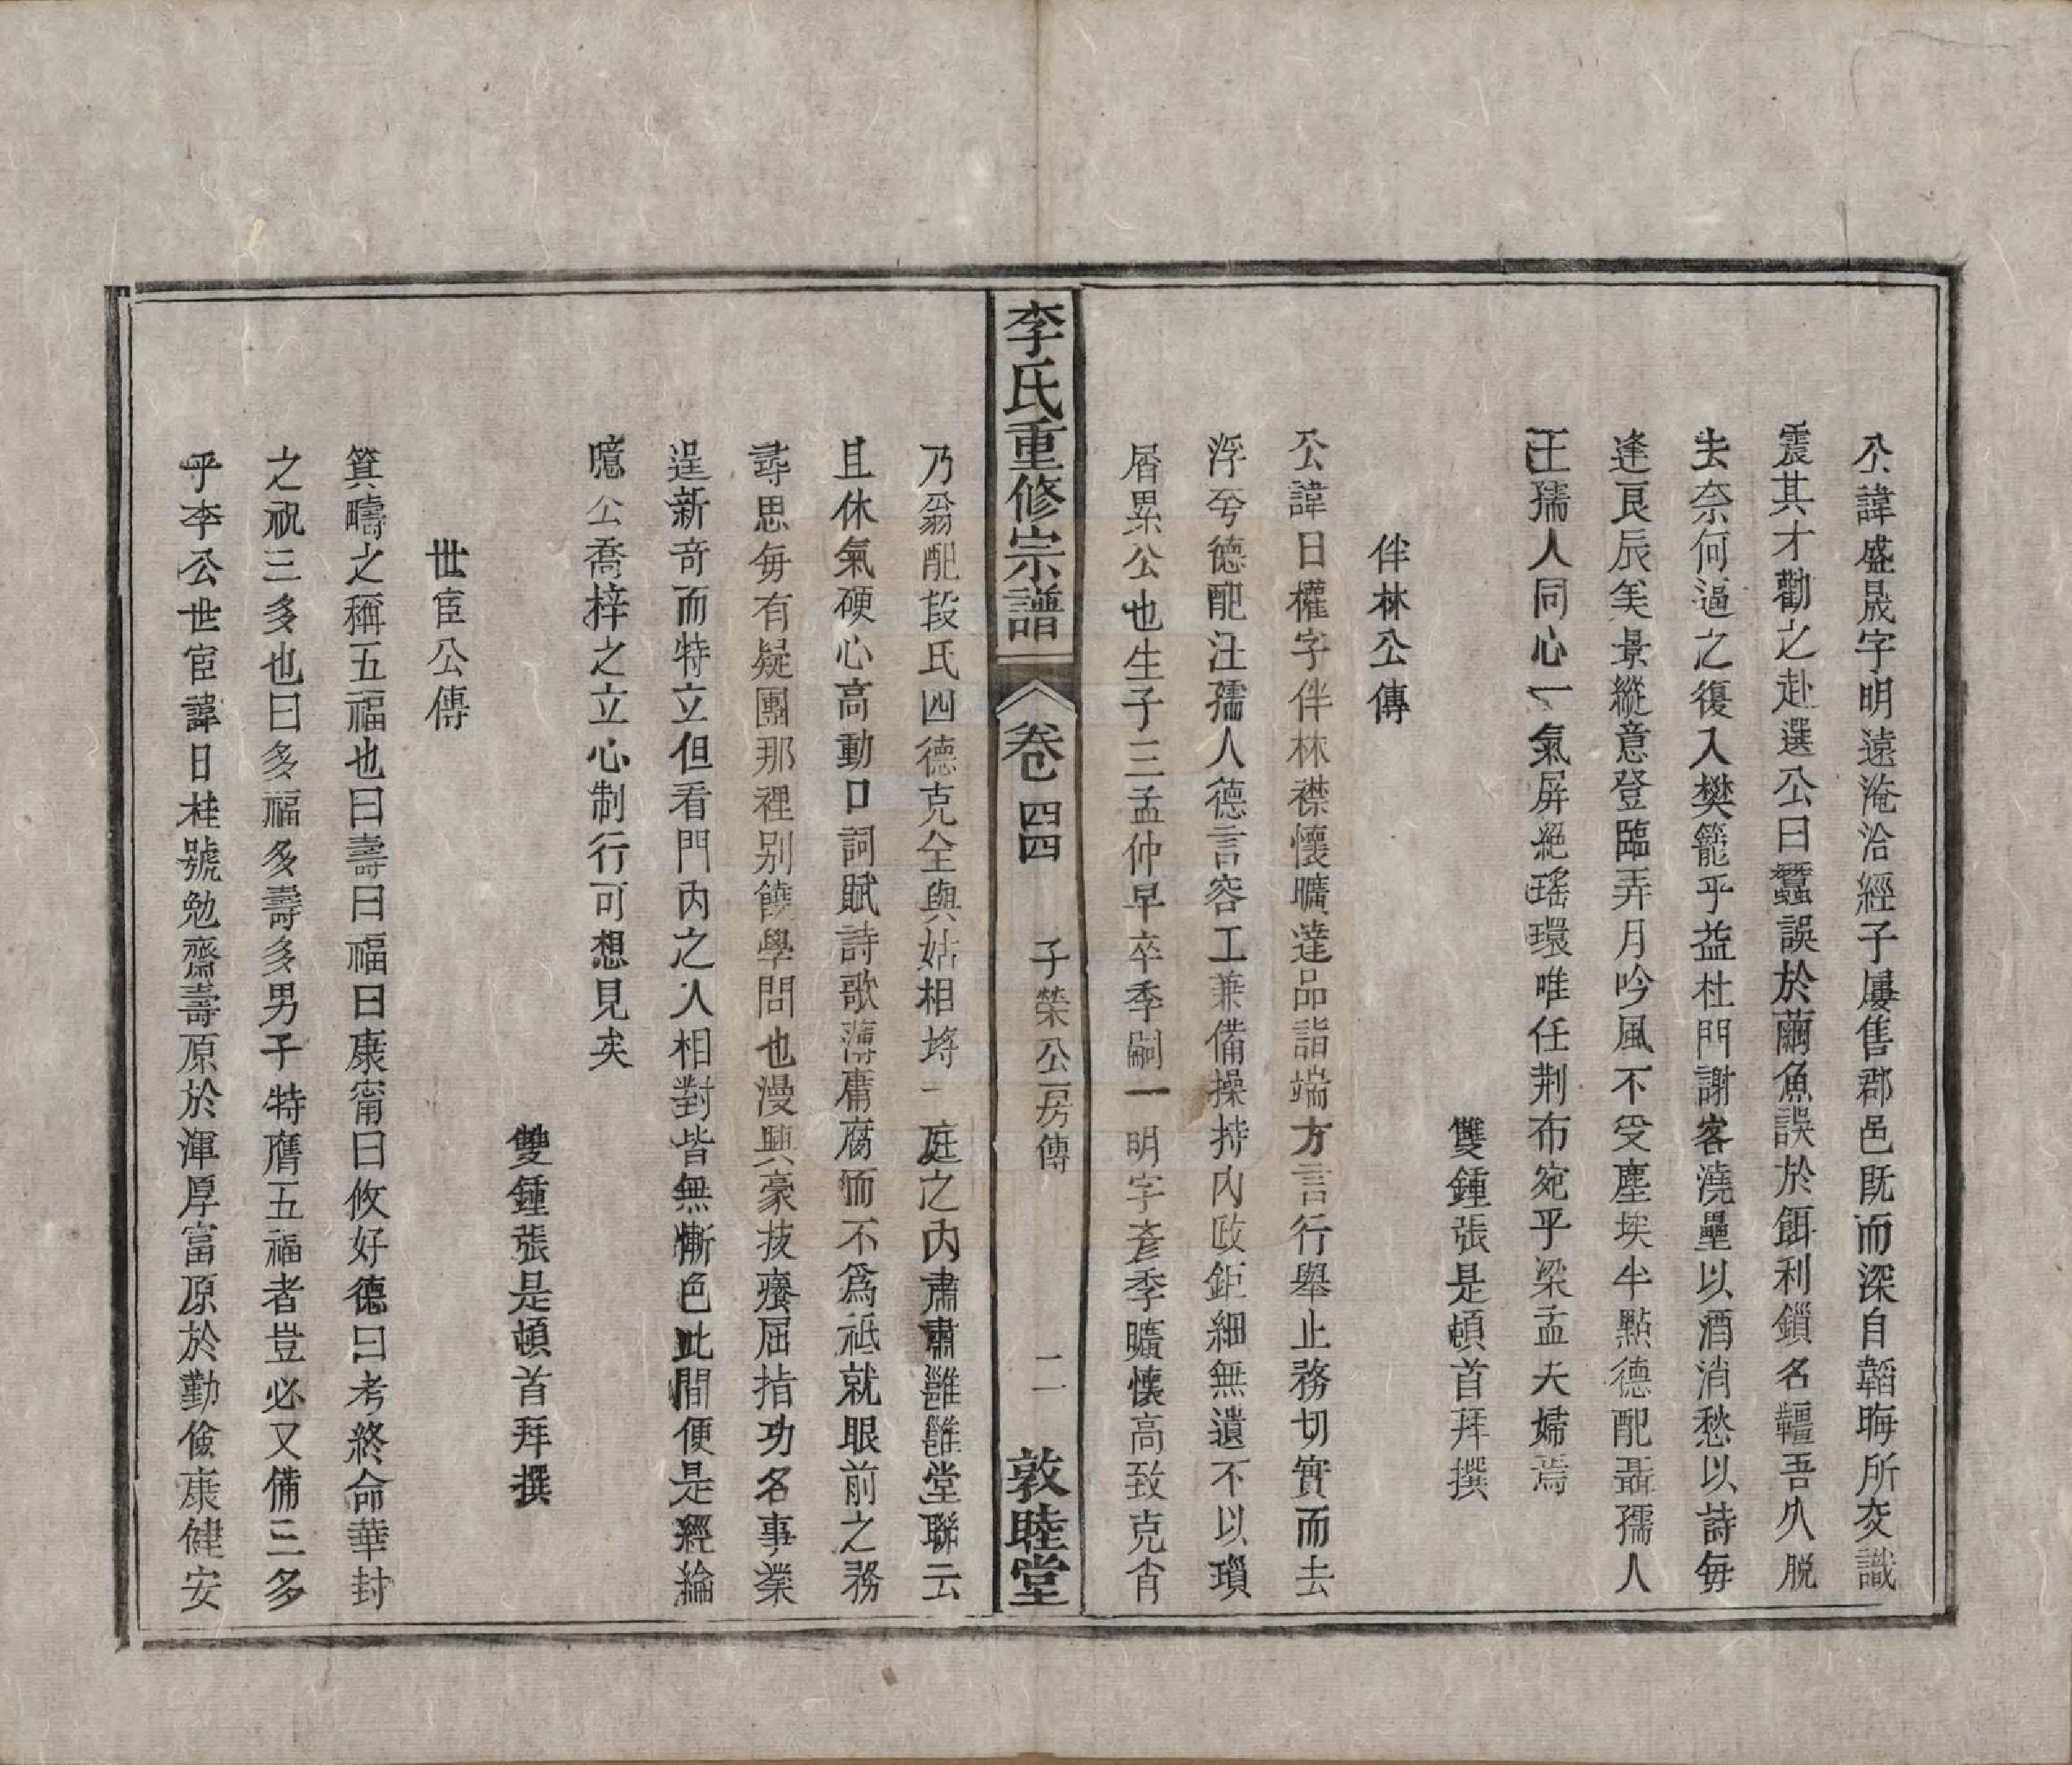 公諱盛晟字明遠淹洽經子屢售郡邑既而深自韜晦所交識
震其才勸之赴選公曰蠶誤於繭魚誤於餌利鎖名韁吾久脫
去奈何逼之復入樊籠乎益杜門謝客澆壘以酒消愁以詩每
逢良辰美景縱意登臨弄月吟風不受塵埃半點德配聶孺人
王孺人同心一氣屏絕瑤環唯任荆布宛乎梁孟夫婦焉
雙鍾張是頓首拜撰
伴林公傳
公諱日權字伴林襟懷曠達品詣端方言行舉止務切實而去
浮兮德配汪孺人德言容工兼備操持內政鉅細無遺不以瑣
屑累公也生子三孟仲早卒季嗣一明字彥季曠懷高致克肖
李氏重修宗譜 卷四四 子榮公房傳 二 敦睦堂
乃翁配段氏四德克全與姑相埒一庭之內肅肅雝雝堂聯云
且休氣硬心高動口詞賦詩歌薄庸腐而不爲祗就眼前之務
尋思每有疑團那裡别饒學問也漫興豪技癢屈指功名事業
逞新奇而特立但看門內之人相對皆無慚色此間便是經綸
噫公喬梓之立心制行可想見矣
雙鍾張是頓首拜撰
世宦公傳
箕疇之稱五福也曰壽曰福曰康甯曰攸好德曰考終命華封
之祝三多也曰多福多壽多男子特膺五福者豈必又備三多
乎李公世宦諱日桂號勉齋壽原於渾厚富原於勤儉康健安